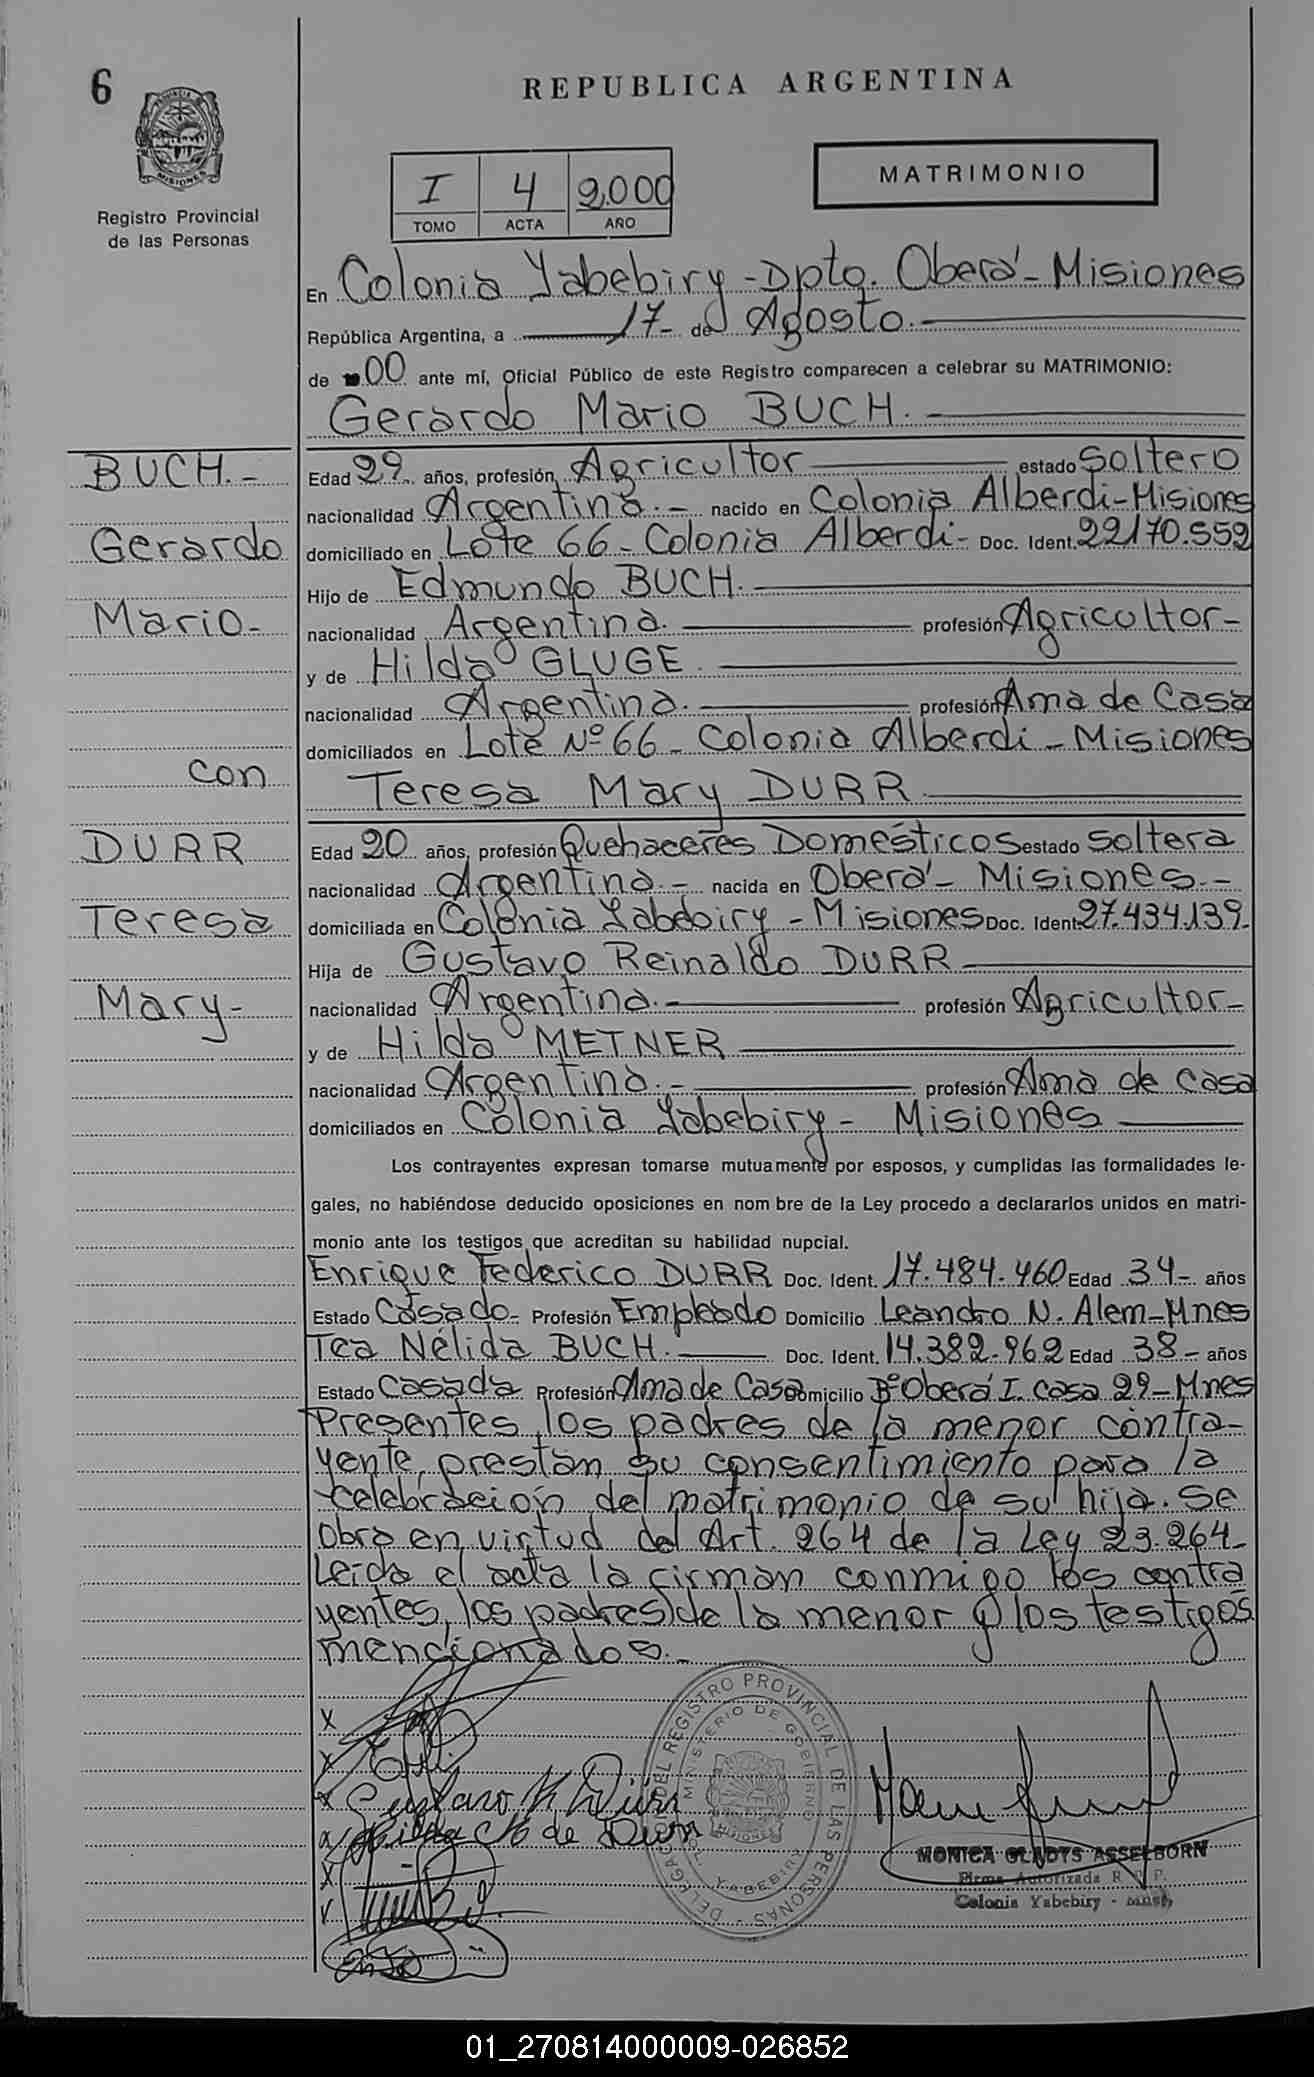 6
REPUBLICA ARGENTINA
MISIONES
Registro Provincial
de las Personas
I 4 2.000
TOMO ACTA AÑO
MATRIMONIO
En Colonia Yabebiry - Dpto. Oberá - Misiones
República Argentina, a 17 - de Agosto.
de 00 ante mí, Oficial Público de este Registro comparecen a celebrar su MATRIMONIO:
Gerardo Mario BUCH.
BUCH.-
Gerardo
Mario-
con
DURR
Teresa
Mary-
Edad 29 años, profesión Agricultor estado Soltero
nacionalidad Argentina.- nacido en Colonia Alberdi-Misiones
domiciliado en Lote 66 - Colonia Alberdi - Doc. Ident. 22170.552
Hijo de Edmundo BUCH.
nacionalidad Argentina. profesión Agricultor-
y de Hilda GLUGE.
nacionalidad Argentina. profesión Ama de Casa
domiciliados en Lote Nº 66 - Colonia Alberdi - Misiones
Teresa Mary DURR
Edad 20 años, profesión Quehaceres Domésticos estado Soltera
nacionalidad Argentina.- nacida en Oberá - Misiones.-
domiciliada en Colonia Yabebiry - Misiones Doc. Ident. 27.434.139-
Hija de Gustavo Reinaldo DURR
nacionalidad Argentina.- profesión Agricultor-
y de Hilda METNER
nacionalidad Argentina.- profesión Ama de Casa
domiciliados en Colonia Yabebiry - Misiones
Los contrayentes expresan tomarse mutuamente por esposos, y cumplidas las formalidades le-
gales, no habiéndose deducido oposiciones en nom bre de la Ley procedo a declararlos unidos en matri-
monio ante los testigos que acreditan su habilidad nupcial.
Enrique Federico DURR Doc. Ident. 17.484.460 Edad 34- años
Estado Casado- Profesión Empleado Domicilio Leandro N. Alem-Mnes
Tea Nélida BUCH. Doc. Ident. 14.382.962 Edad 38- años
Estado Casada Profesión Ama de Casa Domicilio Bº Oberá I casa 29 - Mnes
Presentes los padres de la menor contra-
yente, prestan su consentimiento para la
celebración del matrimonio de su hija. Se
obra en virtud del Art. 264 de la Ley 23.264-
Leída el acta la firman conmigo los contra
yentes, los padres de la menor y los testigos
mencionados.-
Gustavo R Dürr
Hilda M de Dürr
DELEGACION DEL REGISTRO PROVINCIAL DE LAS PERSONAS
MINISTERIO DE GOBIERNO
YABEBIRY
MISIONES
MONICA GLADYS ASSELBORN
Firma Autorizada R. P. P.
Colonia Yabebiry - Mnes.
01_270814000009-026852